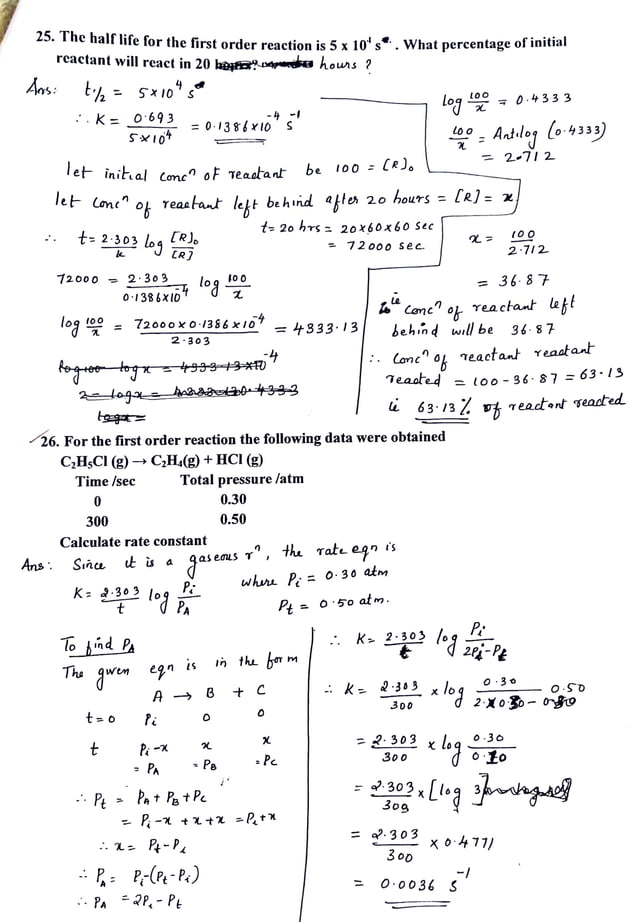 25. The half life for the first order reaction is 5 x 10⁴ s. What percentage of initial
reactant will react in 20 hours ?
Ans: t½ = 5×10⁴ s
∴ K = 0.693 / 5×10⁴ = 0.1386×10⁻⁴ s⁻¹
let initial concⁿ of reactant be 100 = [R]₀
let concⁿ of reactant left behind after 20 hours = [R] = x
t = 20 hrs = 20×60×60 sec
= 72000 sec.
∴ t = 2.303/k log [R]₀/[R]
72000 = 2.303 / 0.1386×10⁻⁴ log 100/x
log 100/x = 72000×0.1386×10⁻⁴ / 2.303 = 4333.13
2 - log x =
log x =
log 100/x = 0.4333
100/x = Antilog (0.4333)
= 2.712
x = 100/2.712
= 36.87
ie concⁿ of reactant left
behind will be 36.87
∴ concⁿ of reactant reactant
reacted = 100-36.87 = 63.13
ie 63.13% of reactant reacted
26. For the first order reaction the following data were obtained
C₂H₅Cl (g) → C₂H₄(g) + HCl (g)
Time /sec Total pressure /atm
0 0.30
300 0.50
Calculate rate constant
Ans: Since it is a gaseous rⁿ, the rate eqn is
K = 2.303/t log Pi/PA where Pi = 0.30 atm
Pt = 0.50 atm.
To find PA
The given eqn is in the form
A → B + C
t=0 Pi 0 0
t Pi-x x x
= PA = PB = PC
∴ Pt = PA + PB + PC
= Pi-x +x+x = Pi+x
∴ x = Pt-Pi
∴ PA = Pi-(Pt-Pi)
∴ PA = 2Pi - Pt
∴ K = 2.303/t log Pi/2Pi-Pt
∴ K = 2.303/300 × log 0.30 / 2×0.30 - 0.50
= 2.303/300 × log 0.30/0.10
= 2.303/300 × [log 3]
= 2.303/300 × 0.4771
= 0.0036 s⁻¹